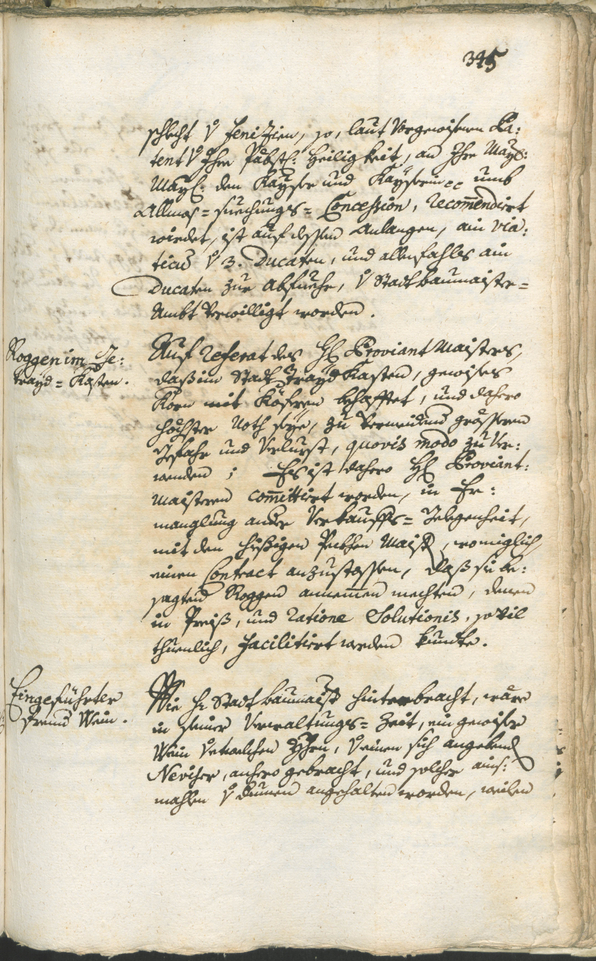 345
schlecht V Jenizien, so, laut Vorgewisenen Pa:
tent V Ihro Päbstl: Heiligkeit, an Ihro Mays:
Mays: den Kayser und Kayserin umb
Allmos=suechungs=Concession, recommendirt
würdet, ist auf dessen Anlangen, ain via:
ticu V 3. Ducaten, und allenfahls ain
Ducaten zur abfuehr, V Stadtbaumaister=
Ambt verwilligt worden.
Roggen im Ge:
trayd=Kasten.
Auf referat des H Proviant Maisters,
daß im Stadt traydt Kasten, gewises
Korn mit Käfern behafftet, und dahero
höchster Noth seye, zu vermeidung grösseren
Gefahr und Verlurst, quovis modo zu ver:
wenden; Es ist dahero H Proviant:
Maistern committirt worden, in Er:
manglung ander Verkauffs=Gelegenheit,
mit den hiesigen Pekhen Maist, womiglich
einen Contract anzustossen, daß sie be:
sagten Roggen annemen mechten, denen
in Preiß, und ratione Solutionis, so vil
thuenlich, facilitiert werden kundte.
Eingeführter
frembd Wein.
Wie H Stadtbaumaist hinterbracht, wäre
in seiner Verwaltungs=Zeit, ein gewiser
Wein V einen sich angebend
anhero gebracht, und solcher ains:
mahlen V denen angehalten worden, weilen